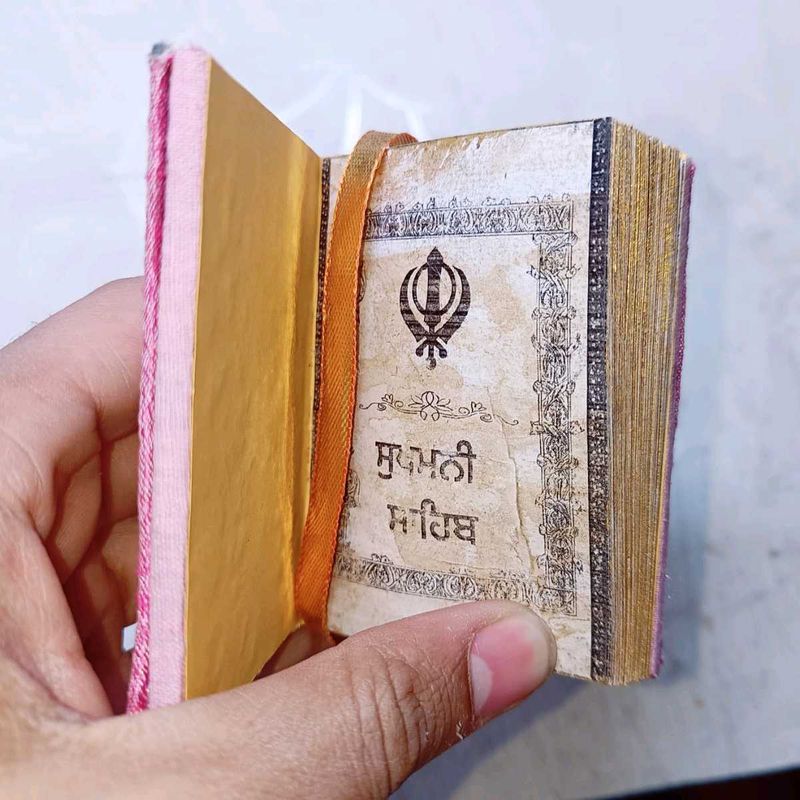 ਸੁਖਮਨੀ
ਸਾਹਿਬ